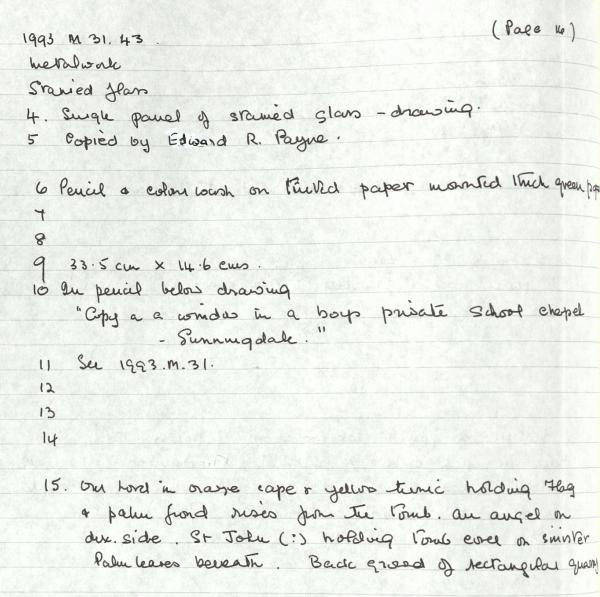 (Page 16)
1993 M 31. 43.
Metalwork
Stained glass
4. Single panel of stained glass - drawing.
5 Copied by Edward R. Payne.
6 Pencil & colour wash on tinted paper mounted thick green pap
7
8
9 33.5 cm x 14.6 cms.
10 In pencil below drawing
"Copy a a window in a boys private school chapel
- Sunningdale."
11 See 1993.M.31.
12
13
14
15. Our Lord in orange cape & yellow tunic holding Flag
& palm frond rises from the tomb. An angel on
dex. side. St John (:) holding tomb cover on sinister
Palm leaves beneath. Back ground of rectangular quarr